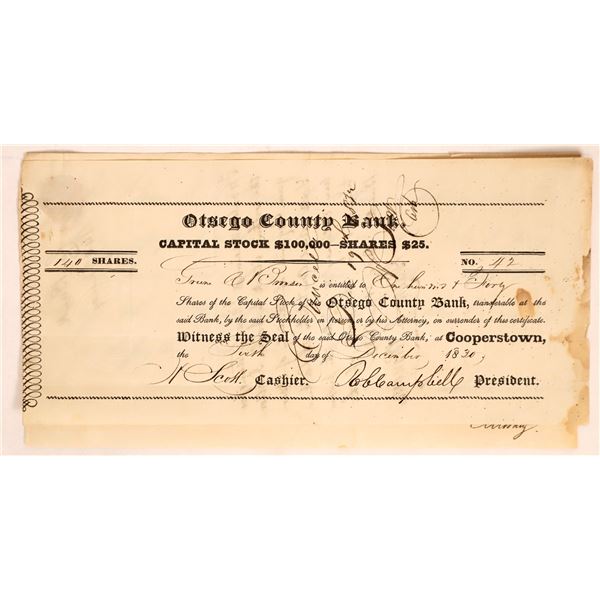 Otsego County Bank.
CAPITAL STOCK $100,000—SHARES $25.
140 SHARES.
NO. 42
is entitled to One hundred & Forty
Shares of the Capital Stock of the Otsego County Bank, transferable at the
said Bank, by the said Stockholder in person or by his Attorney, on surrender of this certificate.
Witness the Seal of the said Otsego County Bank, at Cooperstown,
the Sixth day of December 1830,
H Scott Cashier. Rob Campbell President.